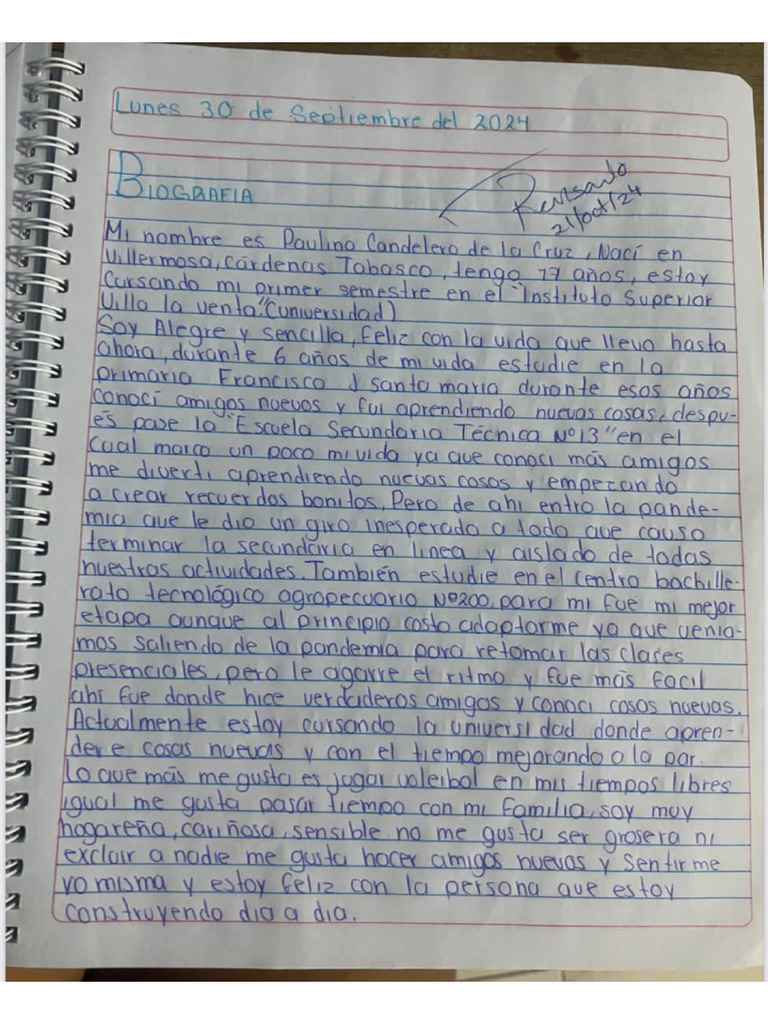 Lunes 30 de Septiembre del 2024
BIOGRAFIA
Revisado
21/oct/24
Mi nombre es Paulina Candelero de la Cruz, Nací en
Villermosa, Cárdenas Tabasco, tengo 17 años, estoy
Cursando mi primer semestre en el "Instituto Superior
Villa la venta" (universidad)
Soy Alegre y sencilla, feliz con la vida que llevo hasta
ahora, durante 6 años de mi vida estudie en la
primaria Francisco J santa maria durante esos años
conocí amigos nuevos y fui aprendiendo nuevas cosas, despu-
és pase la "Escuela Secundaria Técnica Nº13" en el
cual marco un poco mi vida ya que conoci más amigos
me diverti aprendiendo nuevas cosas y empezando
a crear recuerdos bonitos, Pero de ahi entro la pande-
mia que le dio un giro inesperado a todo que causo
terminar la secundaria en linea y aislado de todas
nuestras actividades. También estudie en el centro bachille-
rato tecnológico agropecuario Nº200, para mi fue mi mejor
etapa aunque al principio costo adaptarme ya que venia-
mos saliendo de la pandemia para retomar las clases
presenciales, pero le agarre el ritmo y fue más facil
ahi fue donde hice verdaderos amigos y conoci cosas nuevas.
Actualmente estoy cursando la universidad donde apren-
dere cosas nuevas y con el tiempo mejorando a la par.
Lo que más me gusta es jugar voleibol en mis tiempos libres
igual me gusta pasar tiempo con mi familia, soy muy
hogareña, cariñosa, sensible no me gusta ser grosera ni
excluir a nadie me gusta hacer amigos nuevos y sentirme
yo misma y estoy feliz con la persona que estoy
construyendo dia a dia.